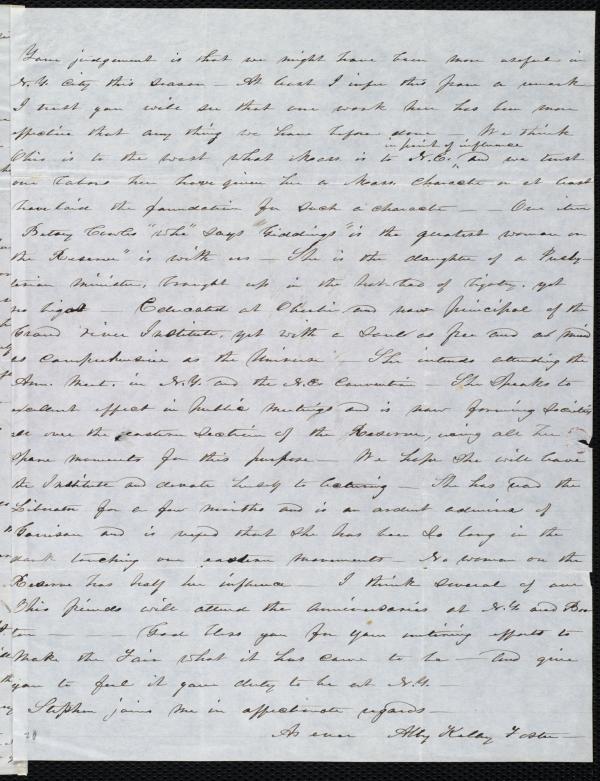 Your judgement is that we might have been more useful in
N.Y. City this season — At least I infer this from a remark
I trust you will see that our work here has been more
effective that any thing we have before done — We think
in point of influence
Ohio is to the west what Mass is to N.E. and we trust
our labors here have given her a Mass. character or at least
have laid the foundation for such a character — — Our item
Betsey Cowles "who" says "Giddings" is the greatest woman on
the Reserve" is with us — She is the daughter of a Presby-
terian minister, brought up in the hot-bed of bigotry, yet
no bigot — Educated at Oberlin and now principal of the
Grand river Institute, yet with a soul as free and a mind
as comprehensive as the Universe — She intends attending the
Ann. Meet. in N.Y. and the N.E. Convention — She speaks to
excellent effect in public meetings and is now forming societies
all over the eastern section of the Reserve, using all her
spare moments for this purpose — We hope she will leave
the Institute and devote herself to lecturing — She has read the
Liberator for a few months and is an ardent admirer of
Garrison and is vexed that she has been so long in the
dark touching our eastern movements — No woman on the
Reserve has half her influence — I think several of our
Ohio friends will attend the anniversaries at N.Y. and Bos-
ton — — God bless you for your untiring efforts to
make the Fair what it has come to be — and give
you to feel it your duty to be at N.Y. —
Stephen joins me in affectionate regards
As ever Abby Kelley Foster